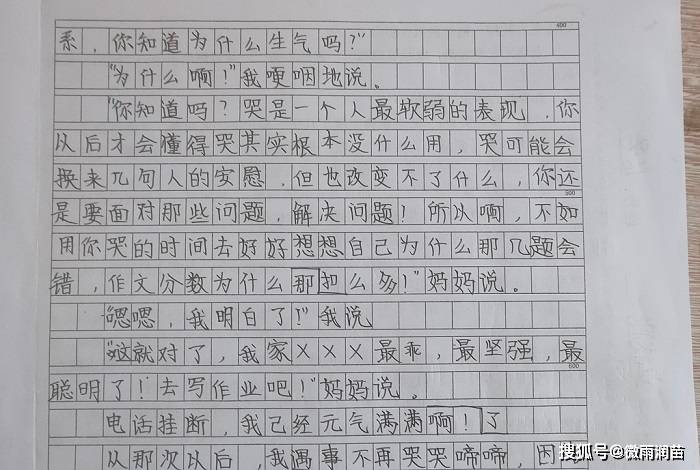 400
系，你知道为什么生气吗？”
“为什么啊！”我哽咽地说。
“你知道吗？哭是一个人最软弱的表现，你
以后才会懂得哭其实根本没什么用，哭可能会
换来几句人的安慰，但也改变不了什么，你还
500
是要面对那些问题，解决问题！所以啊，不如
用你哭的时间去好好想想自己为什么那几题会
错，作文分数为什么那扣么多！”妈妈说。
“嗯嗯，我明白了！”我说
“这就对了，我家XXX最乖，最坚强，最
600
聪明了！去写作业吧！”妈妈说。
电话挂断，我已经元气满满啊！了
从那次以后，我遇事不再哭哭啼啼，因
搜狐号@微雨润苗